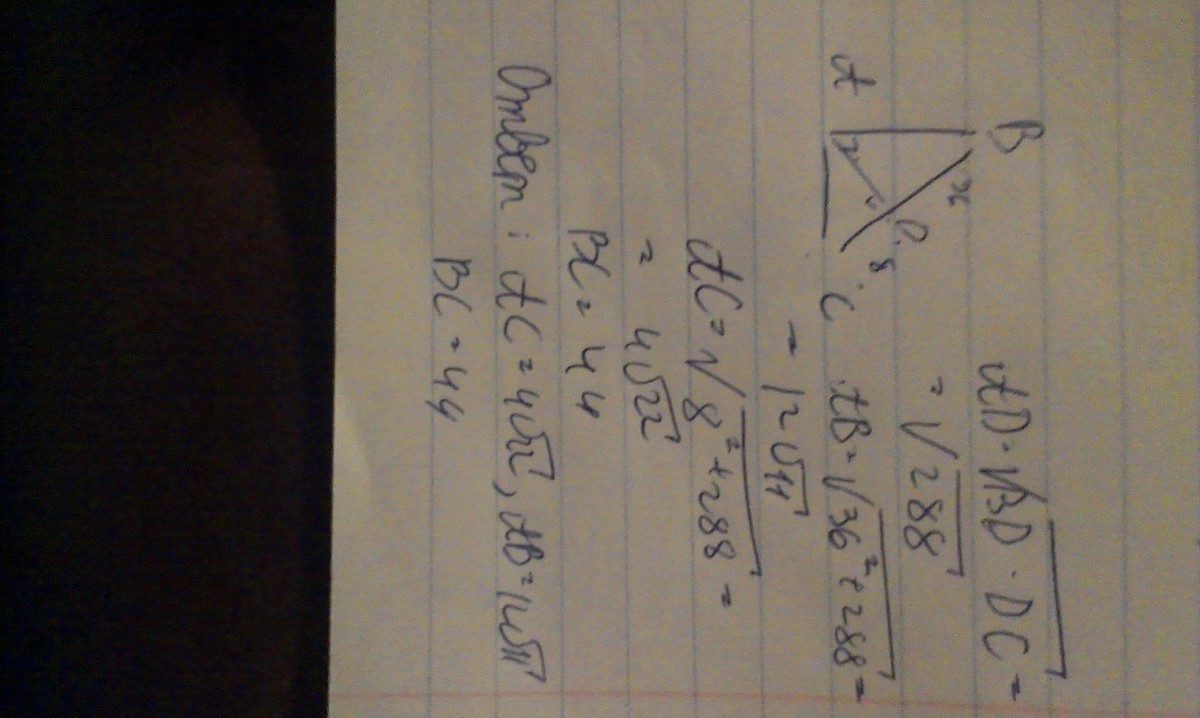 B
x
D
8
A
C
AD = √BD · DC =
= √288
AB = √36² + 288 =
= 12√11
AC = √8² + 288 =
= 4√22
BC = 44
Ответ: AC = 4√22, AB = 12√11
BC = 44